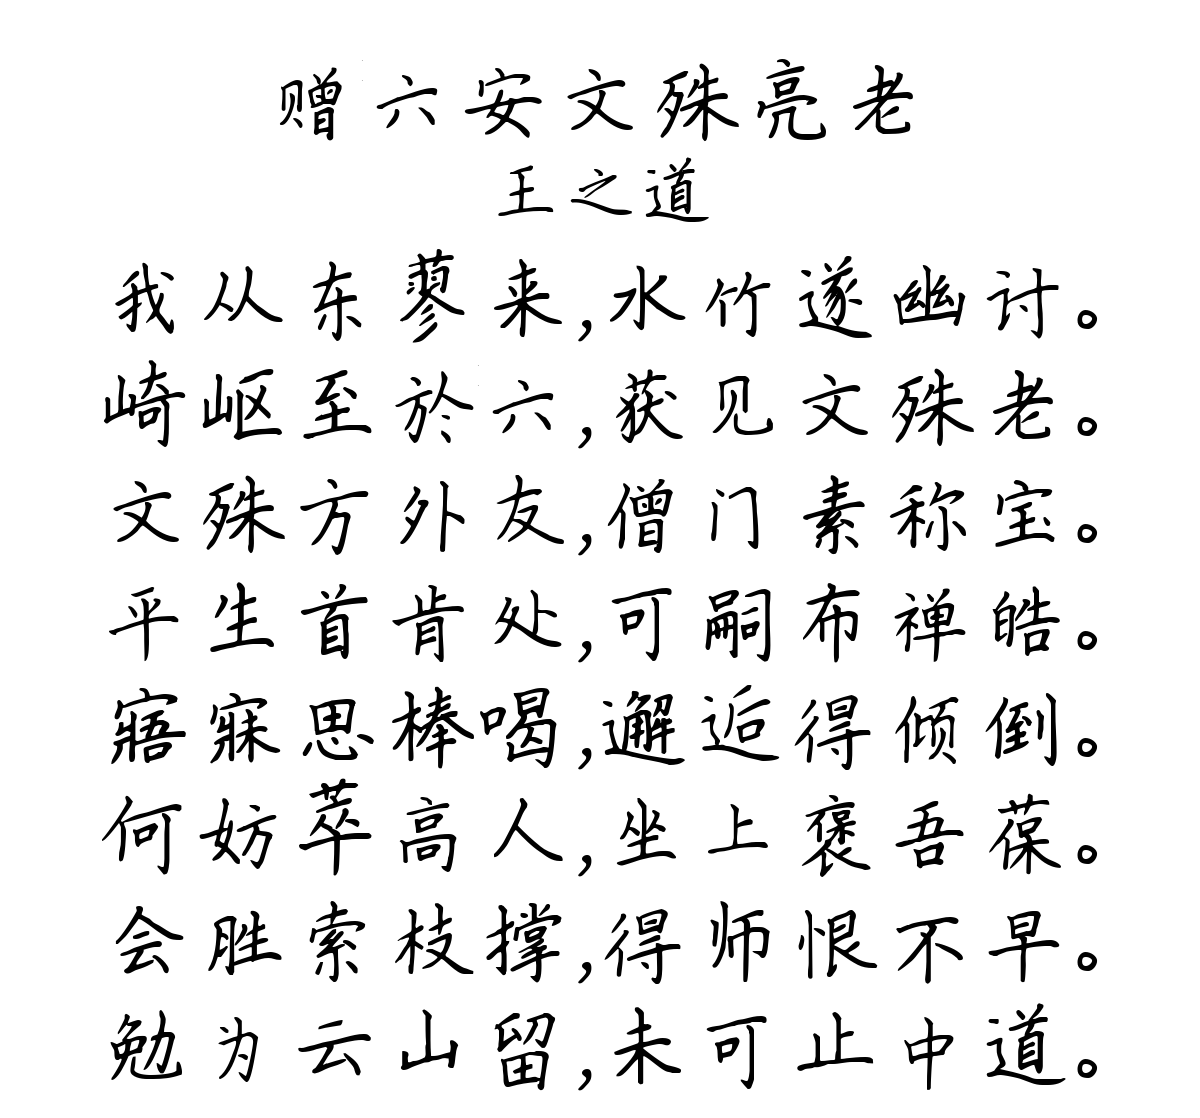 赠六安文殊亮老
王之道
我从东蓼来,水竹遂幽讨。
崎岖至於六,获见文殊老。
文殊方外友,僧门素称宝。
平生首肯处,可嗣布禅皓。
寤寐思棒喝,邂逅得倾倒。
何妨萃高人,坐上褒吾葆。
会胜索枝撑,得师恨不早。
勉为云山留,未可止中道。